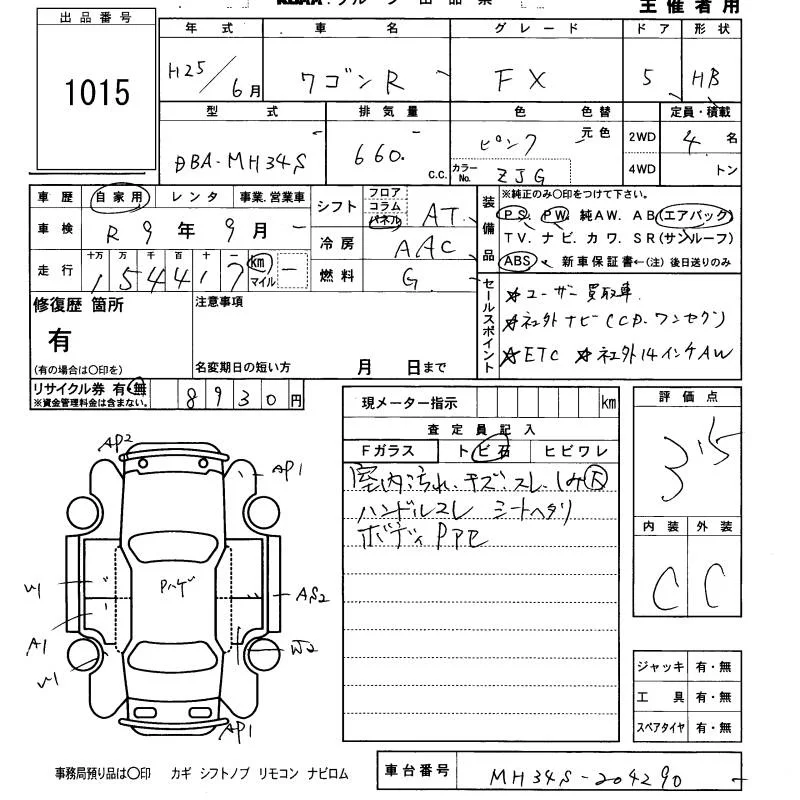 主催者用
出品番号
1015
年式 車名 グレード ドア 形状
H25/6月 ワゴンR FX 5 HB
型式 排気量 色 色替 定員・積載
DBA-MH34S 660. C.C. ピンク 元色 2WD 4WD 4名
カラーNo. ZJG トン
車歴 自家用 レンタ 事業.営業車
車検 R9年9月
走行 十万 万 千 百 十 一 km マイル
154417
シフト フロア コラム パネル AT
冷房 AAC
燃料 G
装備品
※純正のみ〇印をつけて下さい。
PS. PW. 純AW. AB(エアバック)
TV. ナビ. カワ. SR(サンルーフ)
ABS 新車保証書←(注) 後日送りのみ
セールスポイント
☆ユーザー買取車
☆社外ナビ(CD.ワンセグ)
☆ETC ☆社外14インチAW
修復歴 箇所
有
(有の場合は〇印を)
注意事項
名変期日の短い方 月 日まで
リサイクル券 有・無
※資金管理料金は含まない。
8930円
現メーター指示 km
査定員記入
Fガラス トビ石 ヒビワレ
室内汚れ.キズ.スレ.シミ大
ハンドルスレ シートヘタリ
評価点
3.5
内装 外装
C C
AP2
AP1
Pハゲ
W1
AS2
A1
W2
W1
AP1
ジャッキ 有・無
工具 有・無
スペアタイヤ 有・無
事務局預り品は〇印 カギ シフトノブ リモコン ナビロム
車台番号 MH34S-204290